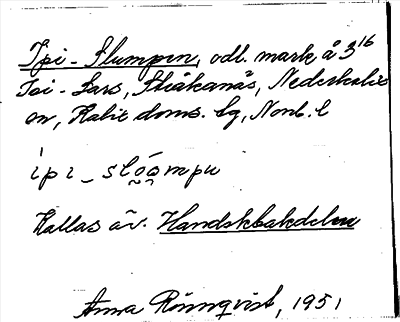 Ipi-Slumpen, odl. mark å 3¹⁶
Isi-Lars, Stråkanäs, Nederkalix
sn, Kalix doms. lg, Norrb. l
ipi_slo̯o̯mpu
Kallas äv. Handskbakdelen
Anna Rönnqvist, 1951